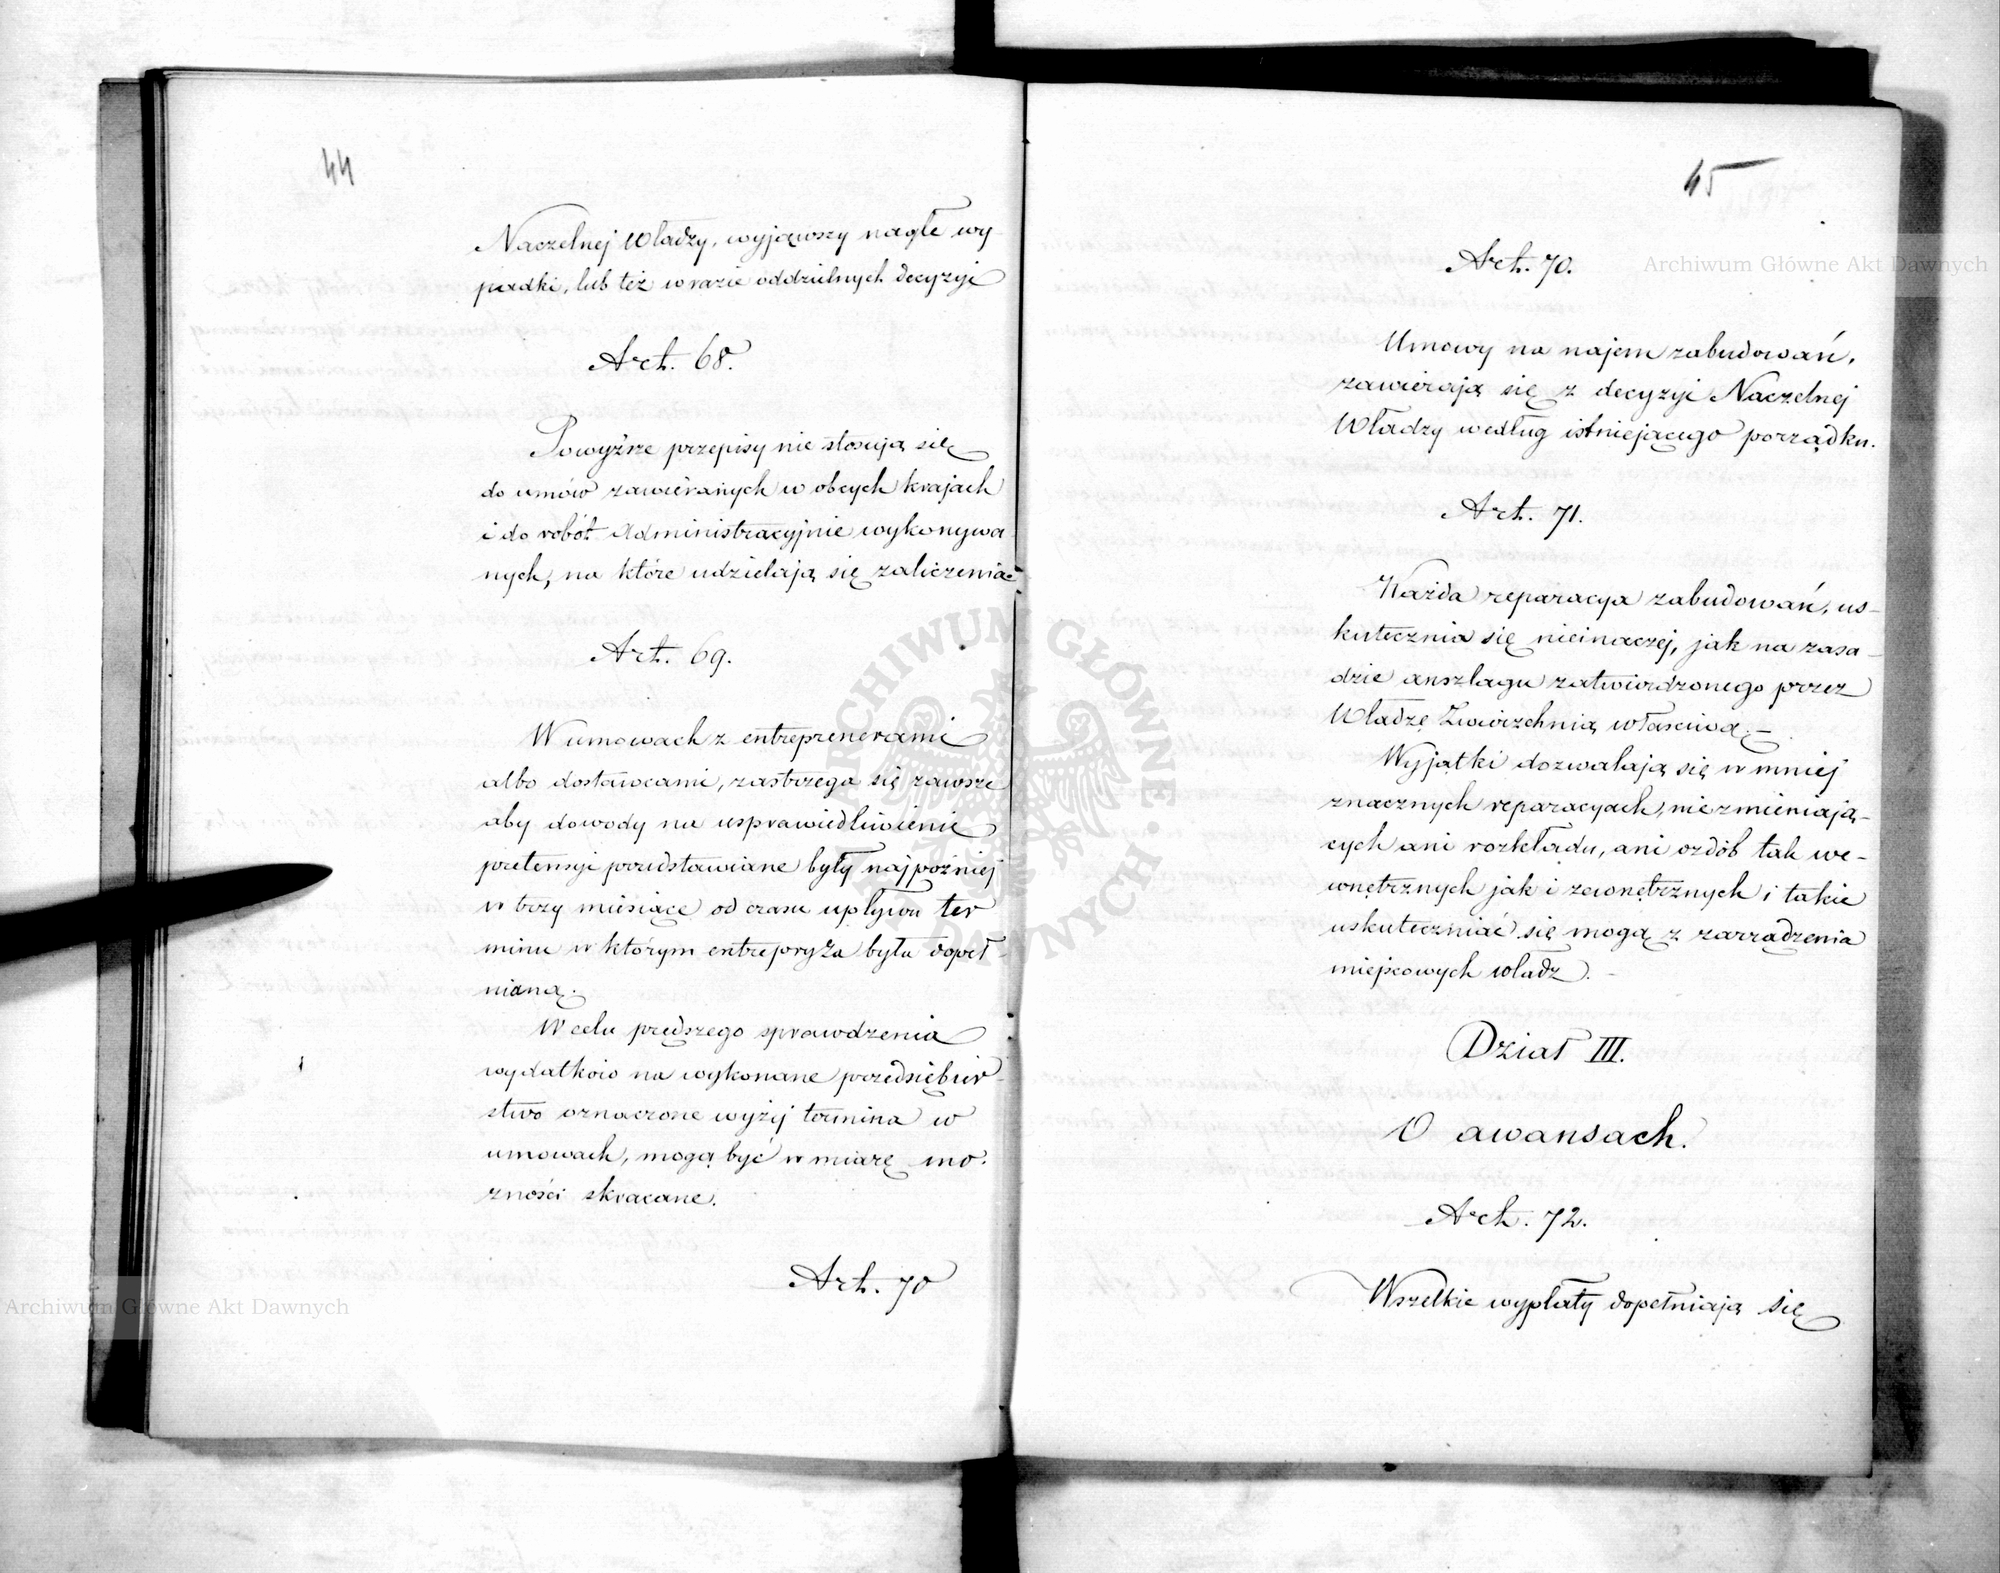 44
Naczelnej Władzy, wyjąwszy nagłe wy
padki, lub też w razie oddzielnych decyzyi
Art. 68.
Powyższe przepisy nie stosują się
do umów zawieranych w obcych krajach
i do robót Administracyjnie wykonywa
nych, na które udzielają się zaliczenia
Art. 69.
W umowach z entreprenerami
albo dostawcami, zastrzega się zawsze
aby dowody na usprawiedliwienie
pretensyi przedstawiane były najpoźniej
w trzy miesiące od czasu upływu ter
minu w którym entrepryza była dopeł-
nianą.
W celu prędszego sprawdzenia
wydatków na wykonane przedsiębier-
stwo oznaczone wyżej termina w
umowach, mogą być w miarę mo.
zności skracane.
Art. 70
45
Art. 70.
Umowy na najem zabudowań,
zawierają się z decyzyi Naczelnej
Władzy według istniejącego porządku.
Art. 71.
Każda reparacya zabudowań, us-
kutecznia się nieinaczej, jak na zasa-
dzie anszlagu zatwierdzonego przez
Władzę Zwierzchnią właściwą.-
Wyjątki dozwalają się w mniej
znacznych reparacyach, nie zmieniają-
cych ani rozkładu, ani ozdób tak we-
wnętrznych jak i zewnętrznych i takie
uskuteczniać się mogą z zarządzenia
miejscowych władz.-
Dział III.
O awansach.
Art. 72.
Wszelkie wypłaty dopełniają się
Archiwum Główne Akt Dawnych
Archiwum Główne Akt Dawnych
ARCHIWUM GŁÓWNE AKT DAWNYCH